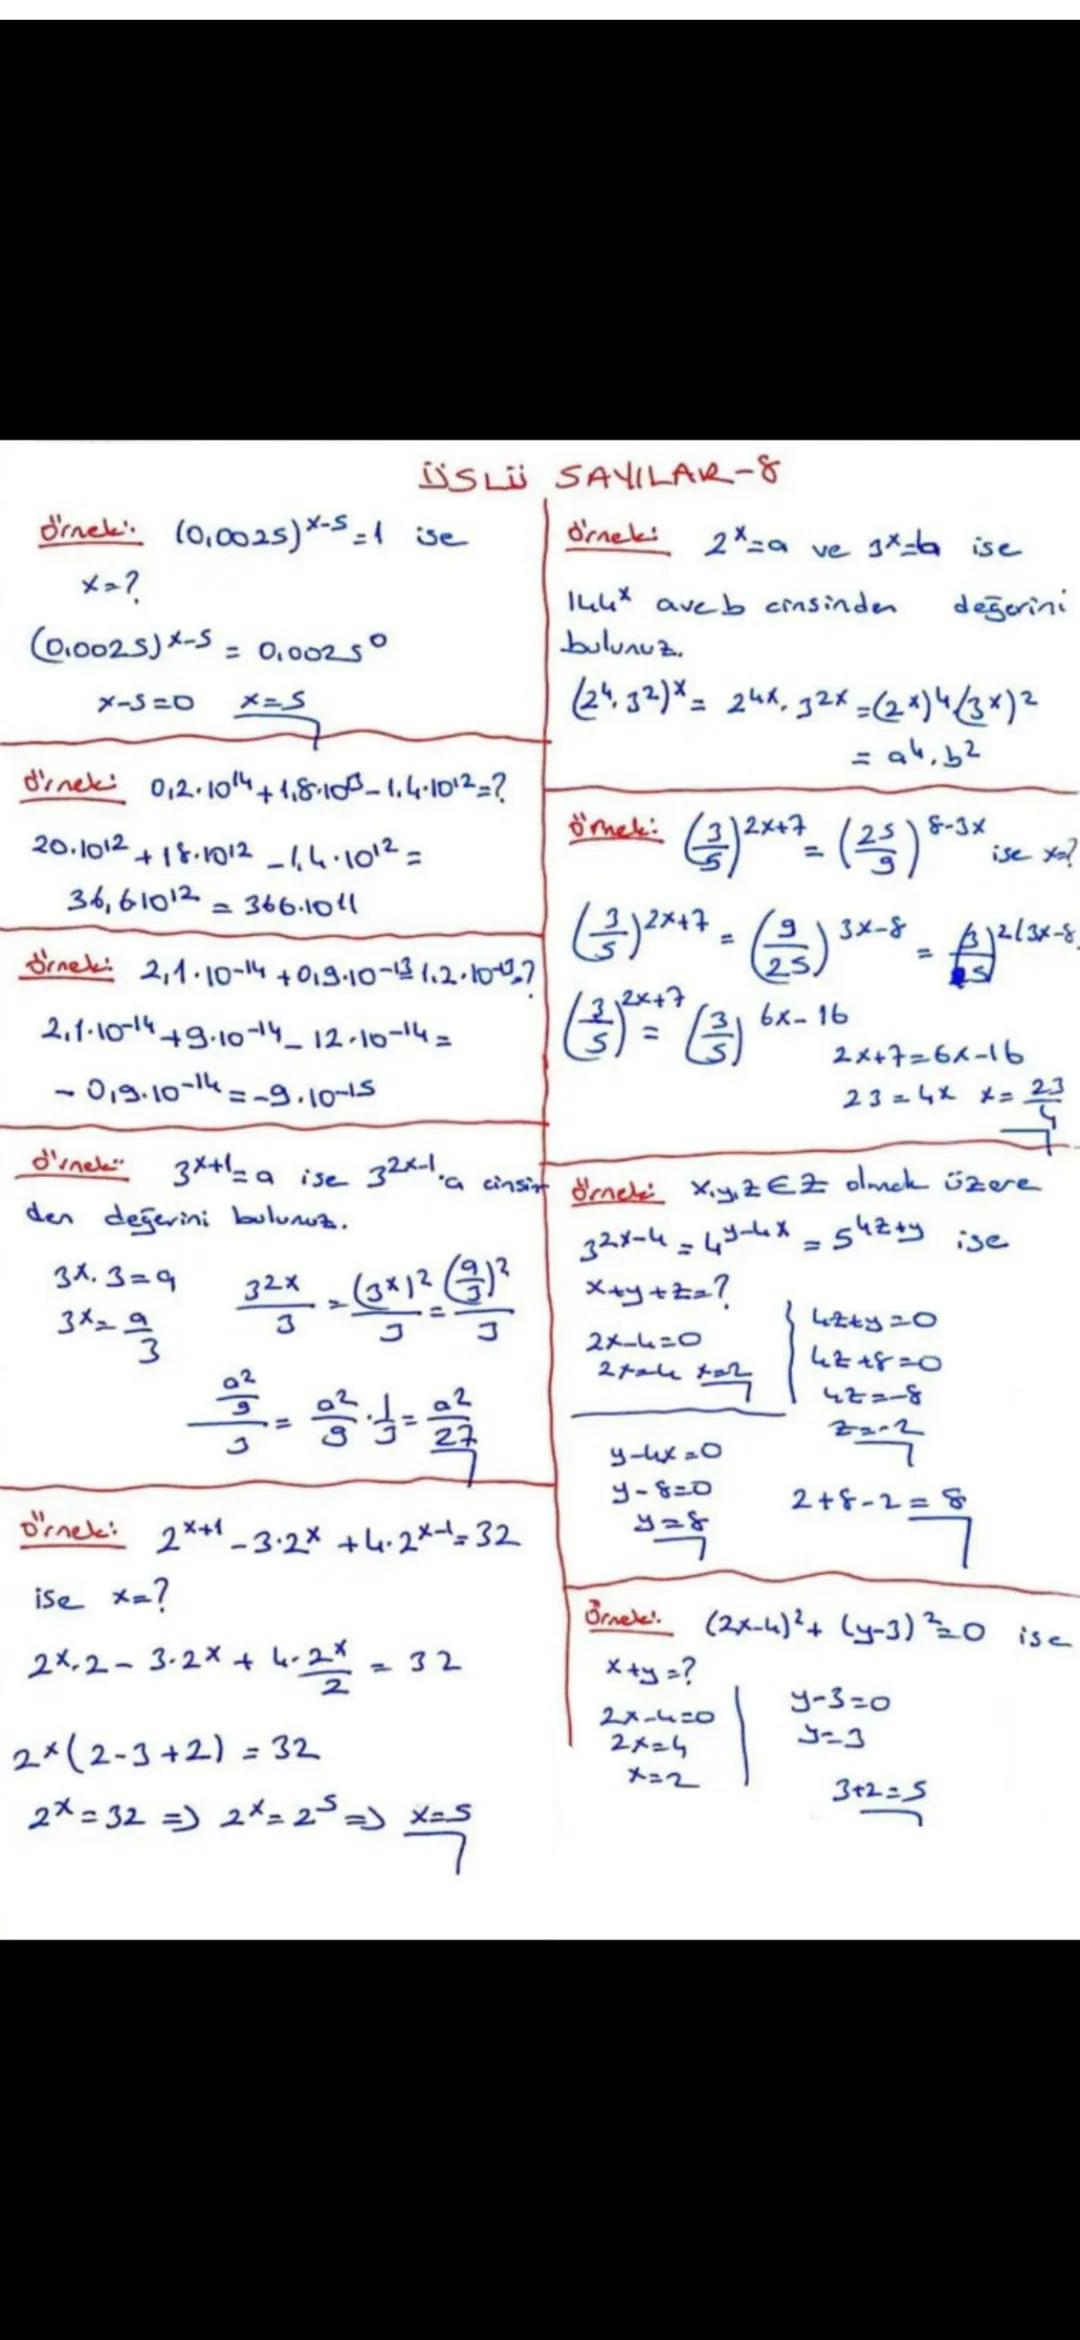 ÜSLÜ SAYILAR-8
Örnek: (0,0025)^x-5 = 1 ise
x=?
(0,0025)^x-5 = 0,0025^0
x-5=0 x=5
Örnek: 0,2·10^14 + 1,8·10^13 - 1,4·10^12 = ?
20·10^12 + 18·10^12 - 1,4·10^12 =
36,6·10^12 = 366·10^11
Örnek: 2,1·10^-14 + 0,9·10^-13 1,2·10^-13 = ?
2,1·10^-14 + 9·10^-14 - 12·10^-14 =
- 0,9·10^-14 = -9·10^-15
Örnek: 3^x+1 = a ise 3^2x-1 'a cinsin
den değerini bulunuz.
3^x · 3 = a
3^x = a/3
3^2x/3 = (3^x)^2/3 = (a/3)^2/3
(a^2/9)/3 = a^2/9 · 1/3 = a^2/27
Örnek: 2^x+1 - 3·2^x + 4·2^x-1 = 32
ise x=?
2^x · 2 - 3·2^x + 4·2^x/2 = 32
2^x (2-3+2) = 32
2^x = 32 ⇒ 2^x = 2^5 ⇒ x=5
Örnek: 2^x = a ve 3^x = b ise
144^x a ve b cinsinden değerini
bulunuz.
(2^4 · 3^2)^x = 2^4x · 3^2x = (2^x)^4 (3^x)^2
= a^4 · b^2
Örnek: (3/5)^2x+7 = (25/9)^8-3x ise x=?
(3/5)^2x+7 = (9/25)^3x-8 = (3/5)^2(3x-8
(3/5)^2x+7 = (3/5)^6x-16
2x+7=6x-16
23=4x x=23/4
Örnek: x,y,z ∈ Z olmak üzere
3^2x-4 = 4^y-4x = 5^4z+y ise
x+y+z=?
2x-4=0
2x=4 x=2
y-4x=0
y-8=0
y=8
4z+y=0
4z+8=0
4z=-8
z=-2
2+8-2=8
Örnek: (2x-4)^2 + (y-3)^2 = 0 ise
x+y=?
2x-4=0
2x=4
x=2
y-3=0
y=3
3+2=5